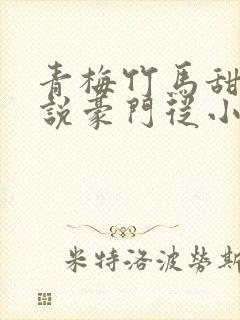 青梅竹馬甜
說豪門從小
米特洛波勞斯